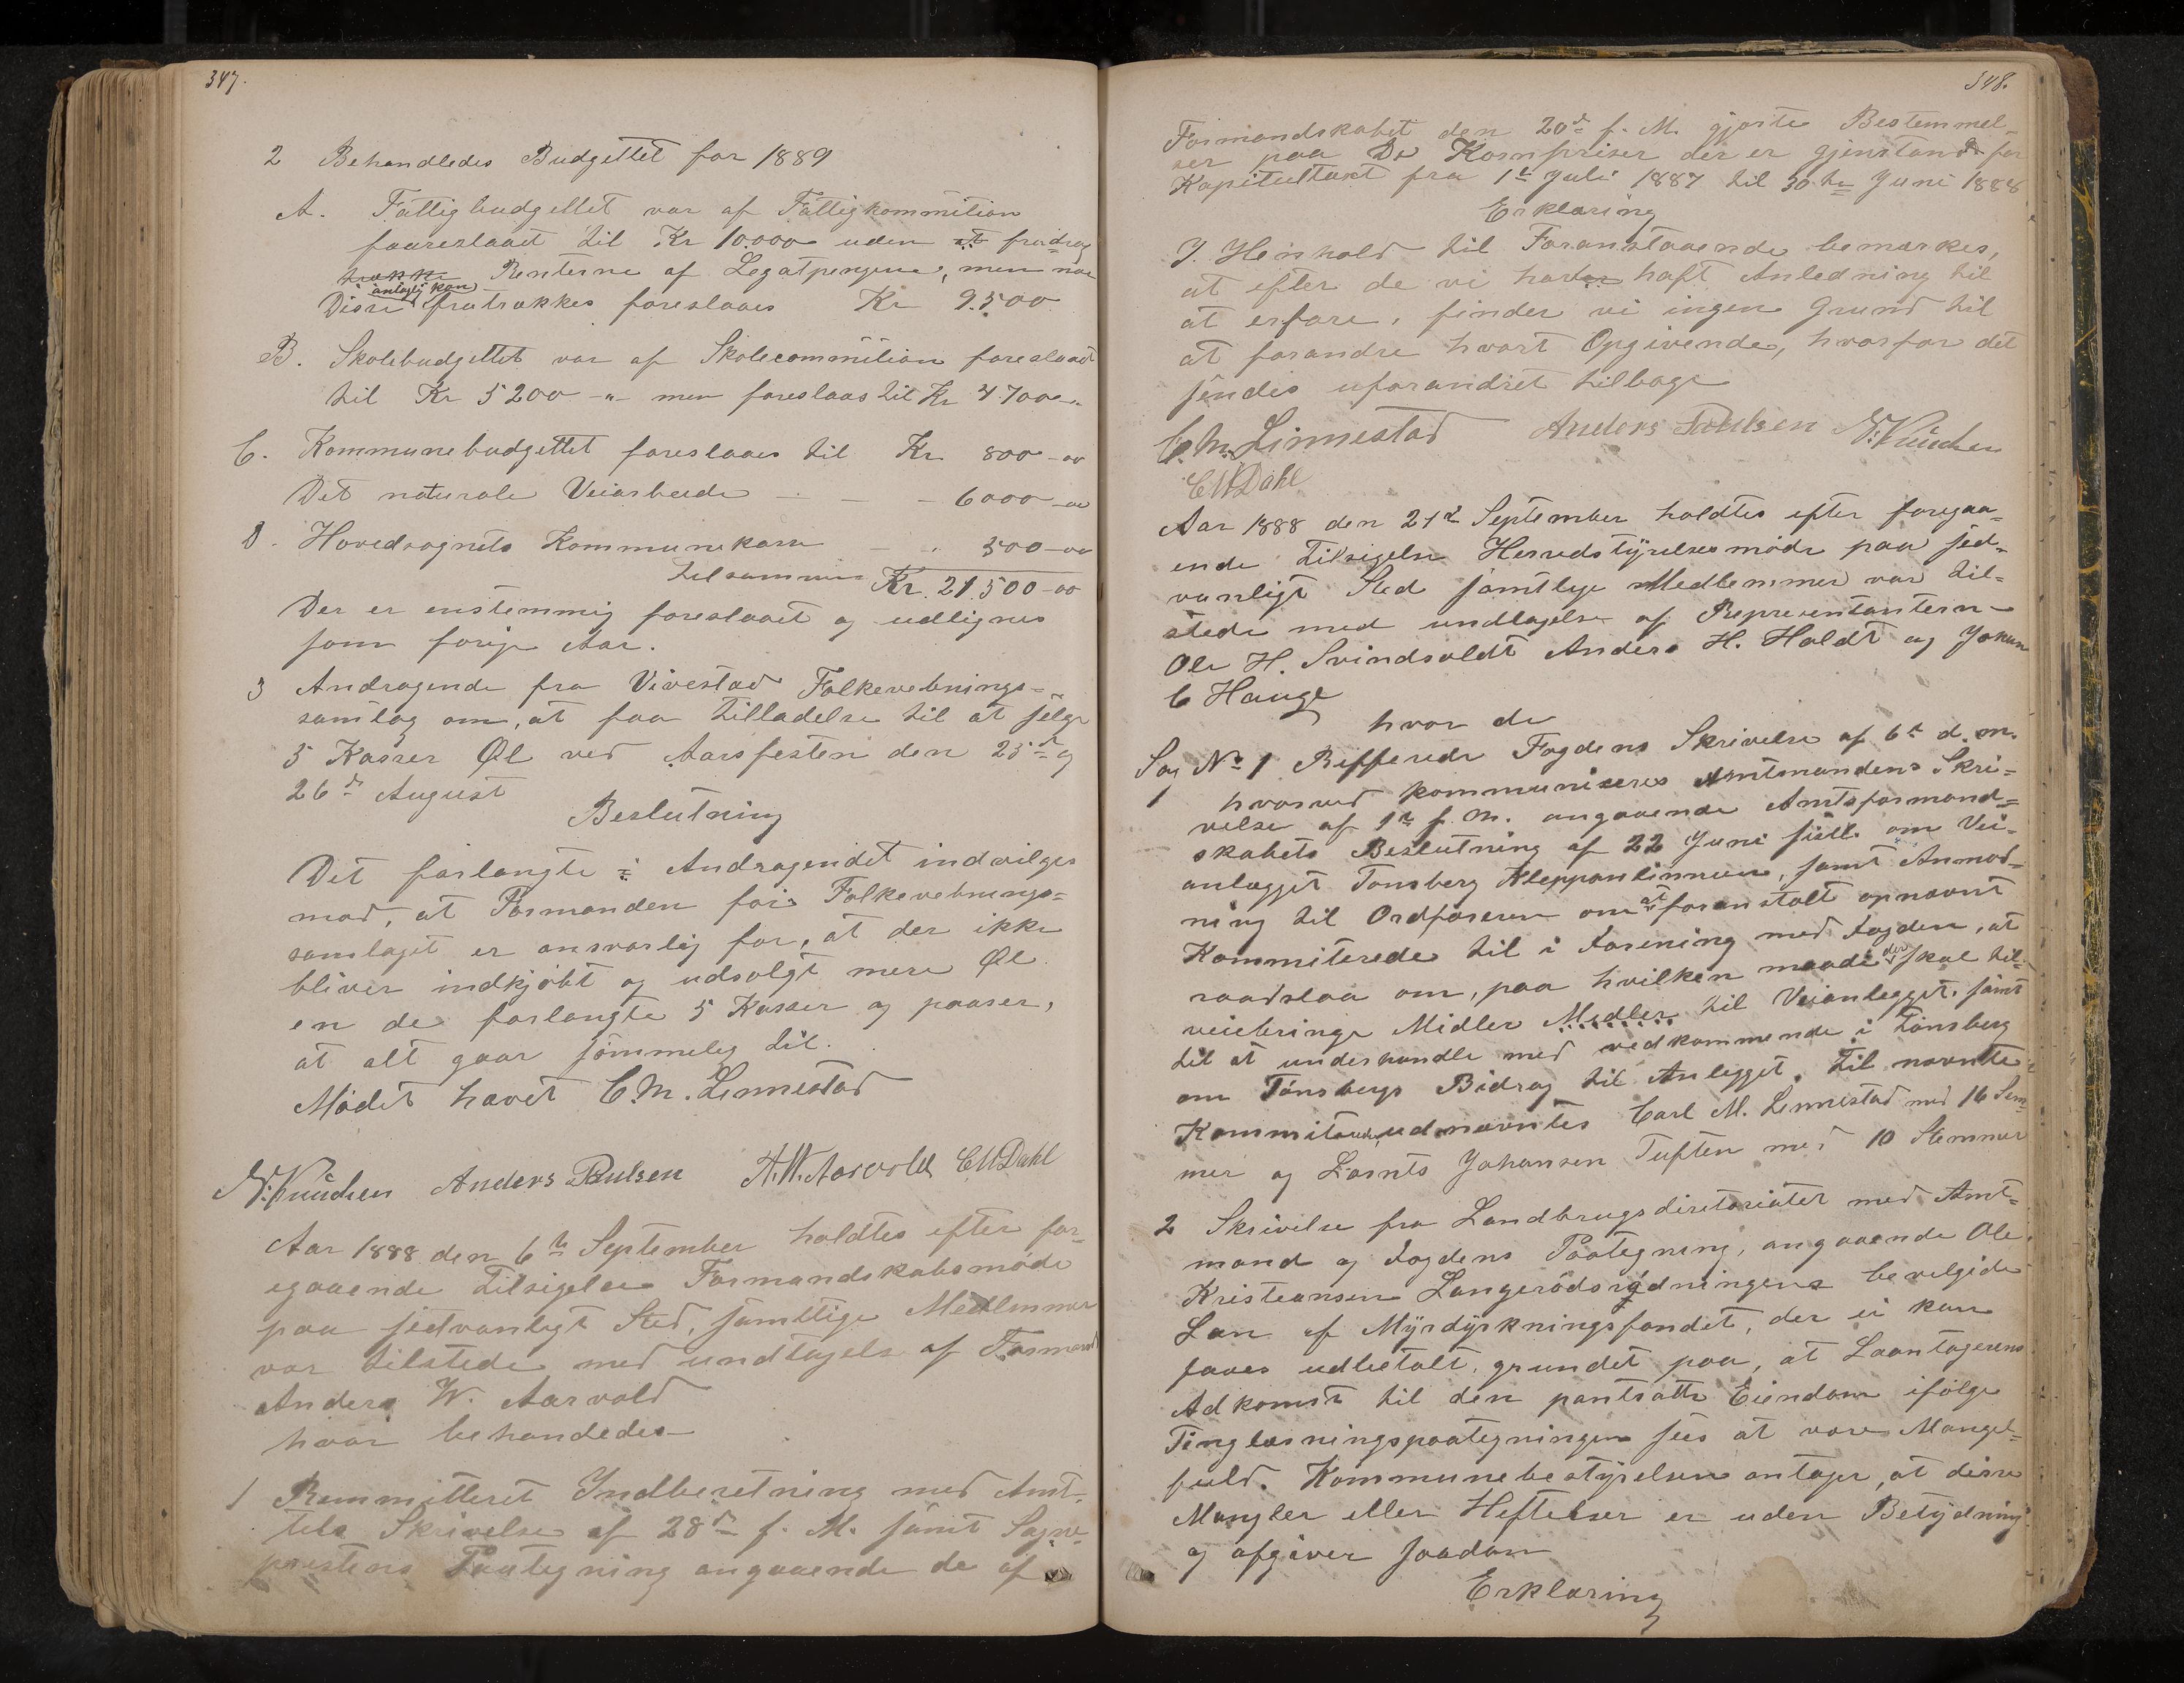 347.
2 Behandledes Budgettet for 1889
A. Fattigbudgettet var af Fattigkommition
faareslaaet til Kr 10.000 uden at fradrag
trække Renterne af Legatpengene, men naar
antagelig kan
Disse fratrækkes foreslaaes Kr 9.500
B. Skolebudgettet var af Skolecommition foreslaaet
til Kr 5200 -„- men foreslaas til Kr 4700-„
C. Kommunebudgettet foreslaaes til Kr 800-00
Det naturale Veiarbeide - - - 6000-00
D. Hovedsognets Kommunekasse - „ 500-00
tilsammen Kr. 21.500-00
Der er enstemmig foreslaaet og udlignes
som forige Aar.
3 Andragende fra Vivestad Folkevebnings-
samlag om, at faa tilladelse til at sælge
5 Kasser Øl ved Aarsfesten den 25de og
26de August
Beslutning
Det forlangte i Andragendet indvilges
mod, at Formanden for Folkevebnings-
samlaget er ansvarlig for, at der ikke
bliver indkjøbt og udsolgt mere Øl
en de forlangte 5 Kasser og paaser,
at alt gaar sømmelig til.
Mødet hævet C. M. Linnestad
N. Knudsen Anders Paulsen A. W. Aarvold C M Dahl
Aar 1888 den 6te September holdtes efter for-
egaaende Tilsigelse Formandskabsmøde
paa sedvanligt Sted, samtlige Medlemmer
var tilstede med undtagelse af Formand
Anders W. Aarvold
hvor behandedes
1 Remmitteret Indberetning med Amt-
tets Skrivelse af 28de f. M. samt Sogne-
prestens Paategning angaaende de af
348.
Formandskabet den 20de f. M. gjorte Bestemmel-
ser paa De Kornpriser der er gjenstand for
Kapitultaxt fra 1te Juli 1887 til 30te Juni 1888
Erklæring
I Henhold til Foranstaaende bemærkes,
at efter de vi har haft Anledning til
at erfare, finder vi ingen Grund til
at forandre hvort Opgivende, hvorfor det
sendes uforandret tilbage
C. M. Linnestad Anders Paulsen N. Knudsen
C M Dahl
Aar 1888 den 21de September holdtes efter foregaa-
ende Tilsigelse Herredstyrelsesmøde paa sed-
vanligt Sted samtlige Medlemmer var til-
stede med undtagelse af Representanterne
Ole H. Svindsoldt Anders H. Holdt og Johan
C Hauge
hvor de
Sag No 1 Refferede Fogdens Skrivelse af 6te d. m.
hvorved kommuniseres Amtmandens Skri-
velse af 1te f. m. angaaende Amtsformand-
skabets Beslutning af 22 Juni sidstl. om Vei-
anlægget Tønsberg Kleppanlinnien, samt Anmod-
ning til Ordføreren om at foranstalte opnævnt
Kommiterede til i Forening med Fogden, at
raadslaa om, paa hvilken maade der skal til-
veiebringe Midler Medler til Veianlegget, samt
til at underhandle med vedkommende i Tønsberg
om Tønsbergs Bidrag til Anlegget. Til nævnte
Kommiterede udnævntes Carl M. Linnestad med 16 Stem-
mer og Lornts Johansen Tuften med 10 Stemmer
2 Skrivelse fra Landbrugsdiretoriatet med Amt-
mand og Fogdens Paategning, angaaende Ole
Kristeansen Langerødsrødningens bevilgede
Lan af Myrdyrkningsfondet, der ei kan
faaes udbetalt, grundet paa, at Laantagerens
Adkomst til den pantsatte Eiendom ifølge
Tinglæsningspaategningen sees at være Mangel-
fuld. Kommunebestyrelsen antager, at disse
Mangler eller Heftelser er uden Betydning
og afgiver saadan
Erklæring